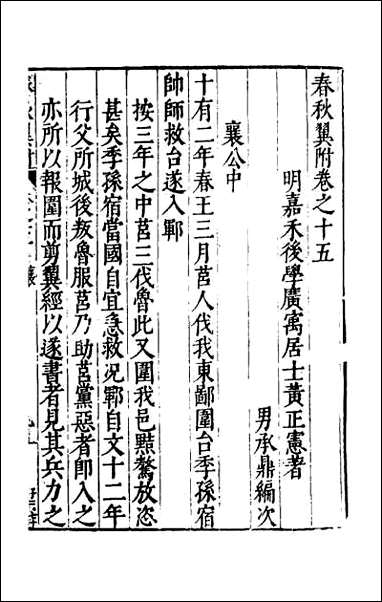 春秋翼附卷之十五
明嘉禾後學廣寓居士黃正憲著
男承鼎編次
襄公中
十有二年春王三月莒人伐我東鄙圍台季孫宿
帥師救台遂入鄆
按三年之中莒三伐魯此又圍我邑黠驁放恣
甚矣季孫宿當國自宜急救況鄆自文十二年
行父所城後叛魯服莒乃助莒黨惡者卽入之
亦所以報圍而剪翼經以遂書者見其兵力之